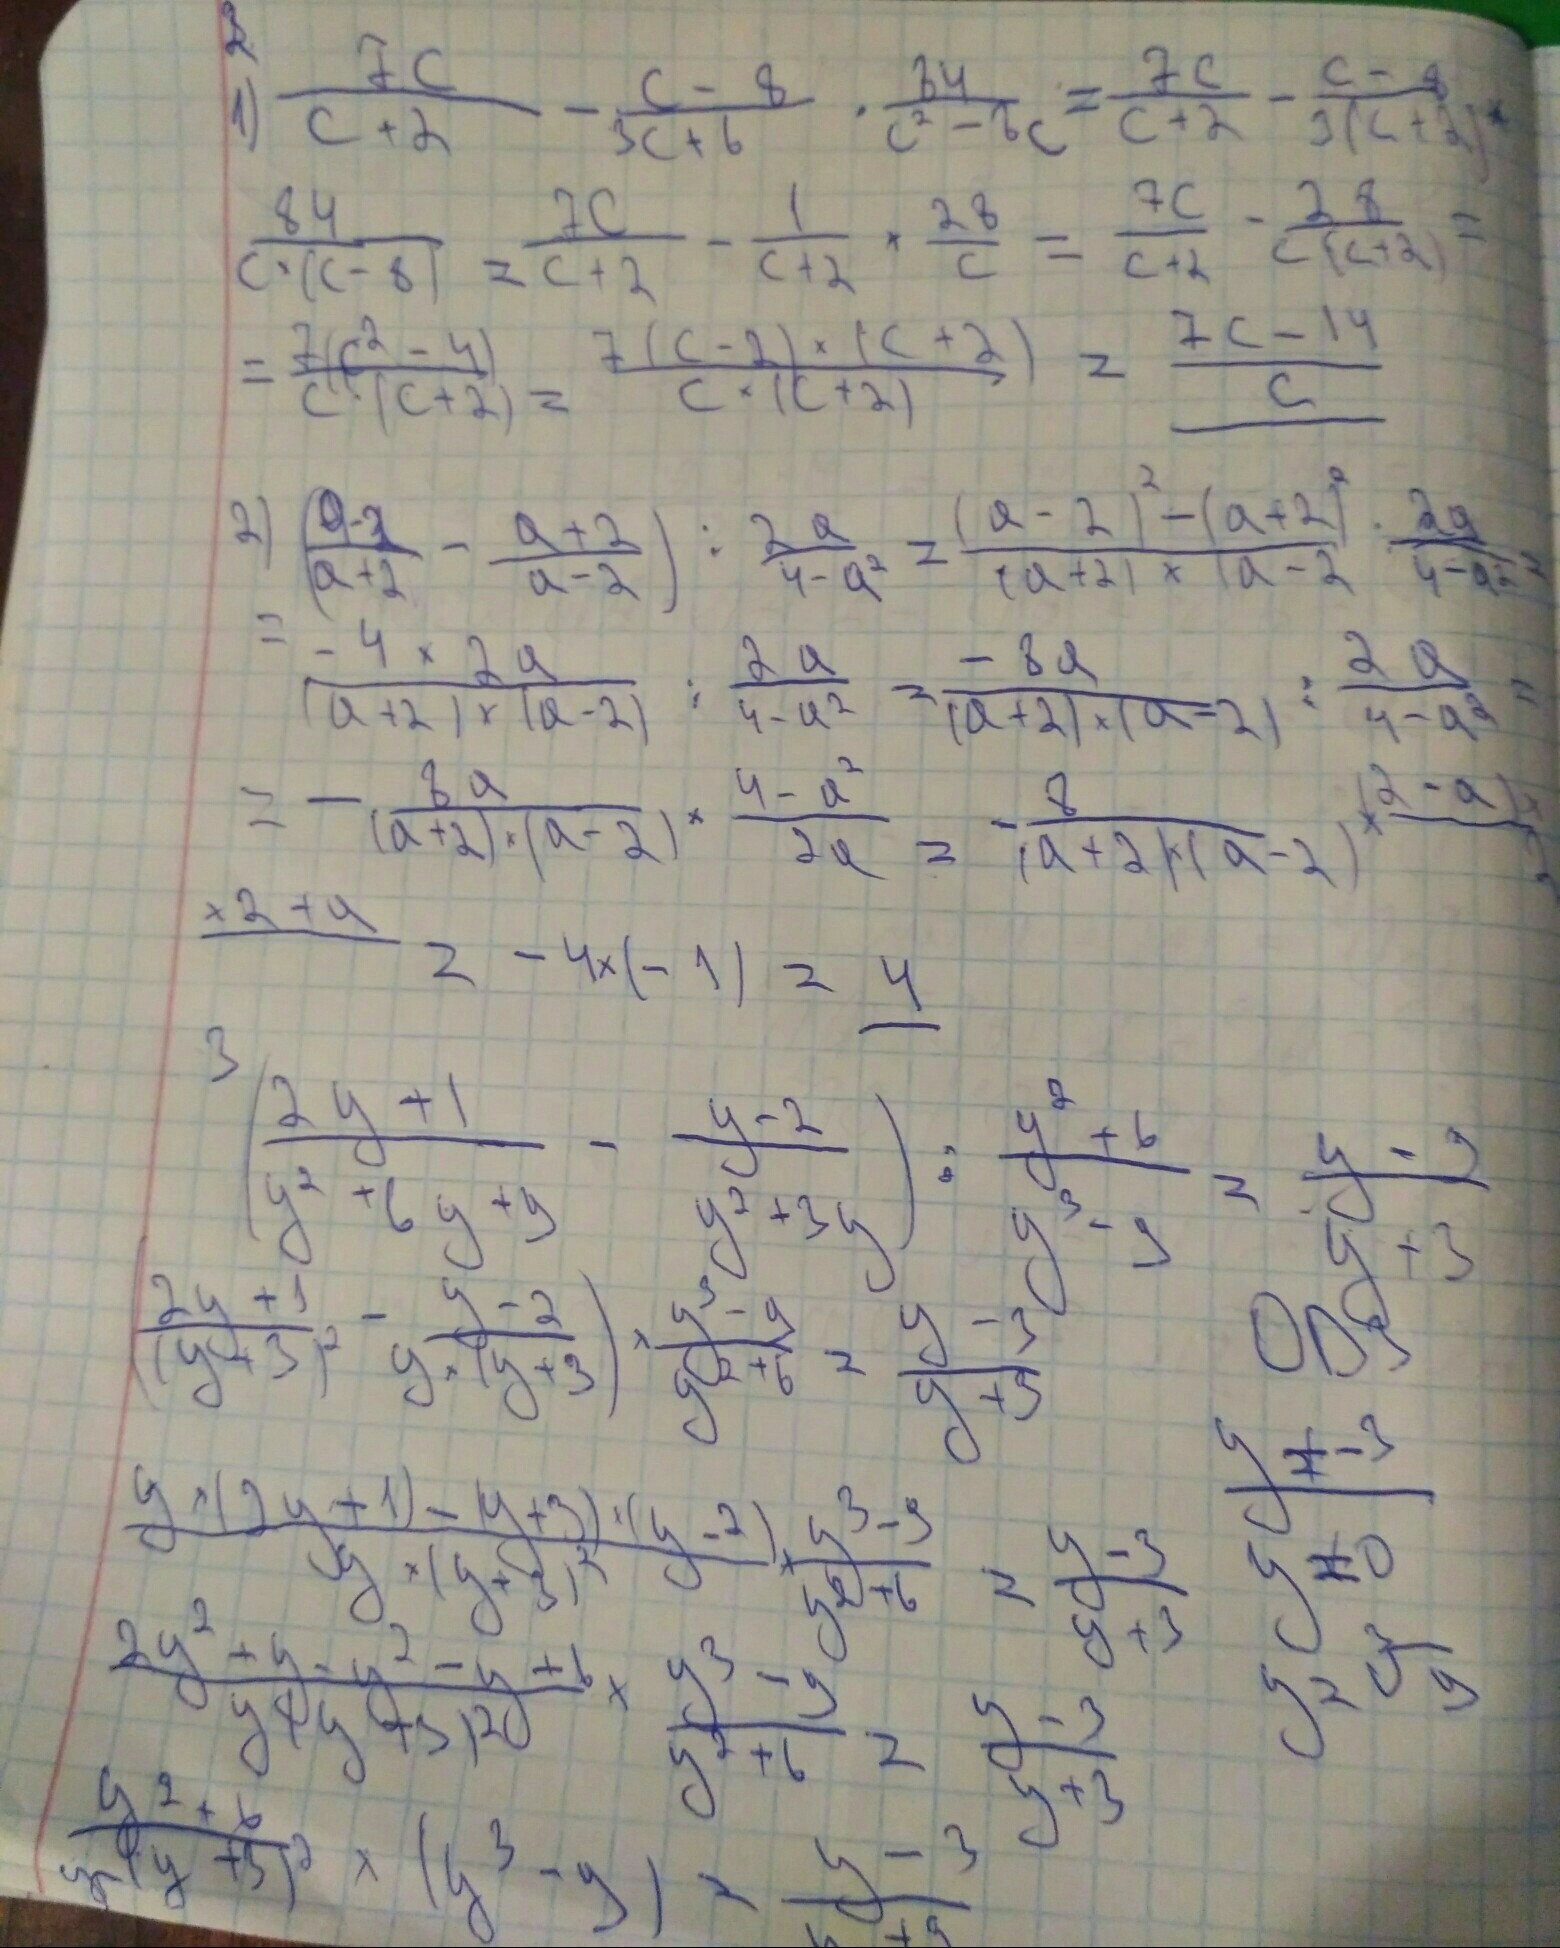 2
1) 7c/(c+2) - (c-8)/(3c+6) · 84/(c²-8c) = 7c/(c+2) - (c-8)/(3(c+2)) ×
84/(c×(c-8)) = 7c/(c+2) - 1/(c+2) × 28/c = 7c/(c+2) - 28/(c(c+2)) =
= 7(c²-4)/(c·(c+2)) = 7(c-2)×(c+2)/(c×(c+2)) = (7c-14)/c
2) ((a-2)/(a+2) - (a+2)/(a-2)) : 2a/(4-a²) = ((a-2)²-(a+2)²)/((a+2)×(a-2) : 2a/(4-a²) =
= -4×2a/((a+2)×(a-2)) : 2a/(4-a²) = -8a/((a+2)×(a-2)) : 2a/(4-a²) =
= - 8a/((a+2)×(a-2)) × (4-a²)/2a = - 8/((a+2)×(a-2)) × (2-a)×/2
×2+a = -4×(-1) = 4
3 ((2y+1)/(y²+6y+9) - (y-2)/(y²+3y)) : (y²+6)/(y³-9) = (y-3)/(y+3)
((2y+1)/(y+3)² - (y-2)/(y×(y+3)) × (y³-9)/(y²+6) = (y-3)/(y+3)
ОДЗ
y≠-3
y≠0
(y×(2y+1)-(y+3)×(y-2))/(y×(y+3)²) × (y³-9)/(y²+6) = (y-3)/(y+3)
y≠∛9
(2y²+y-y²-y+6)/(y×(y+3)²) × (y³-9)/(y²+6) = (y-3)/(y+3)
(y²+6)/(y×(y+3)²) × (y³-9) = (y-3)/(y+3)